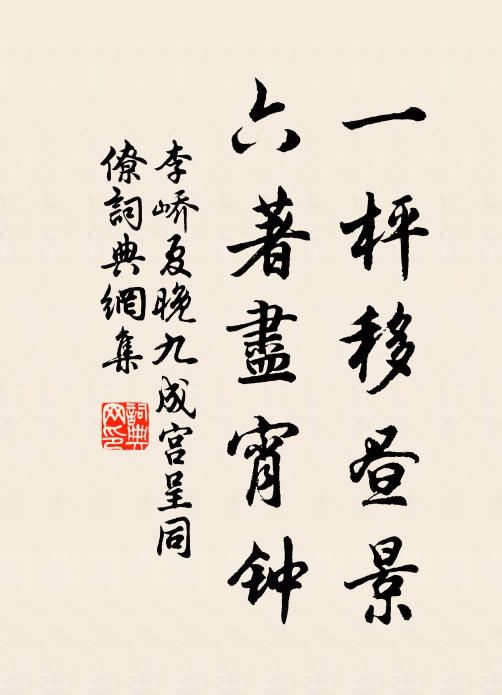 一枰移昼景
六著盡宵钟
李嶠夏晚九成宫呈同
僚詞典網集
詞典网印